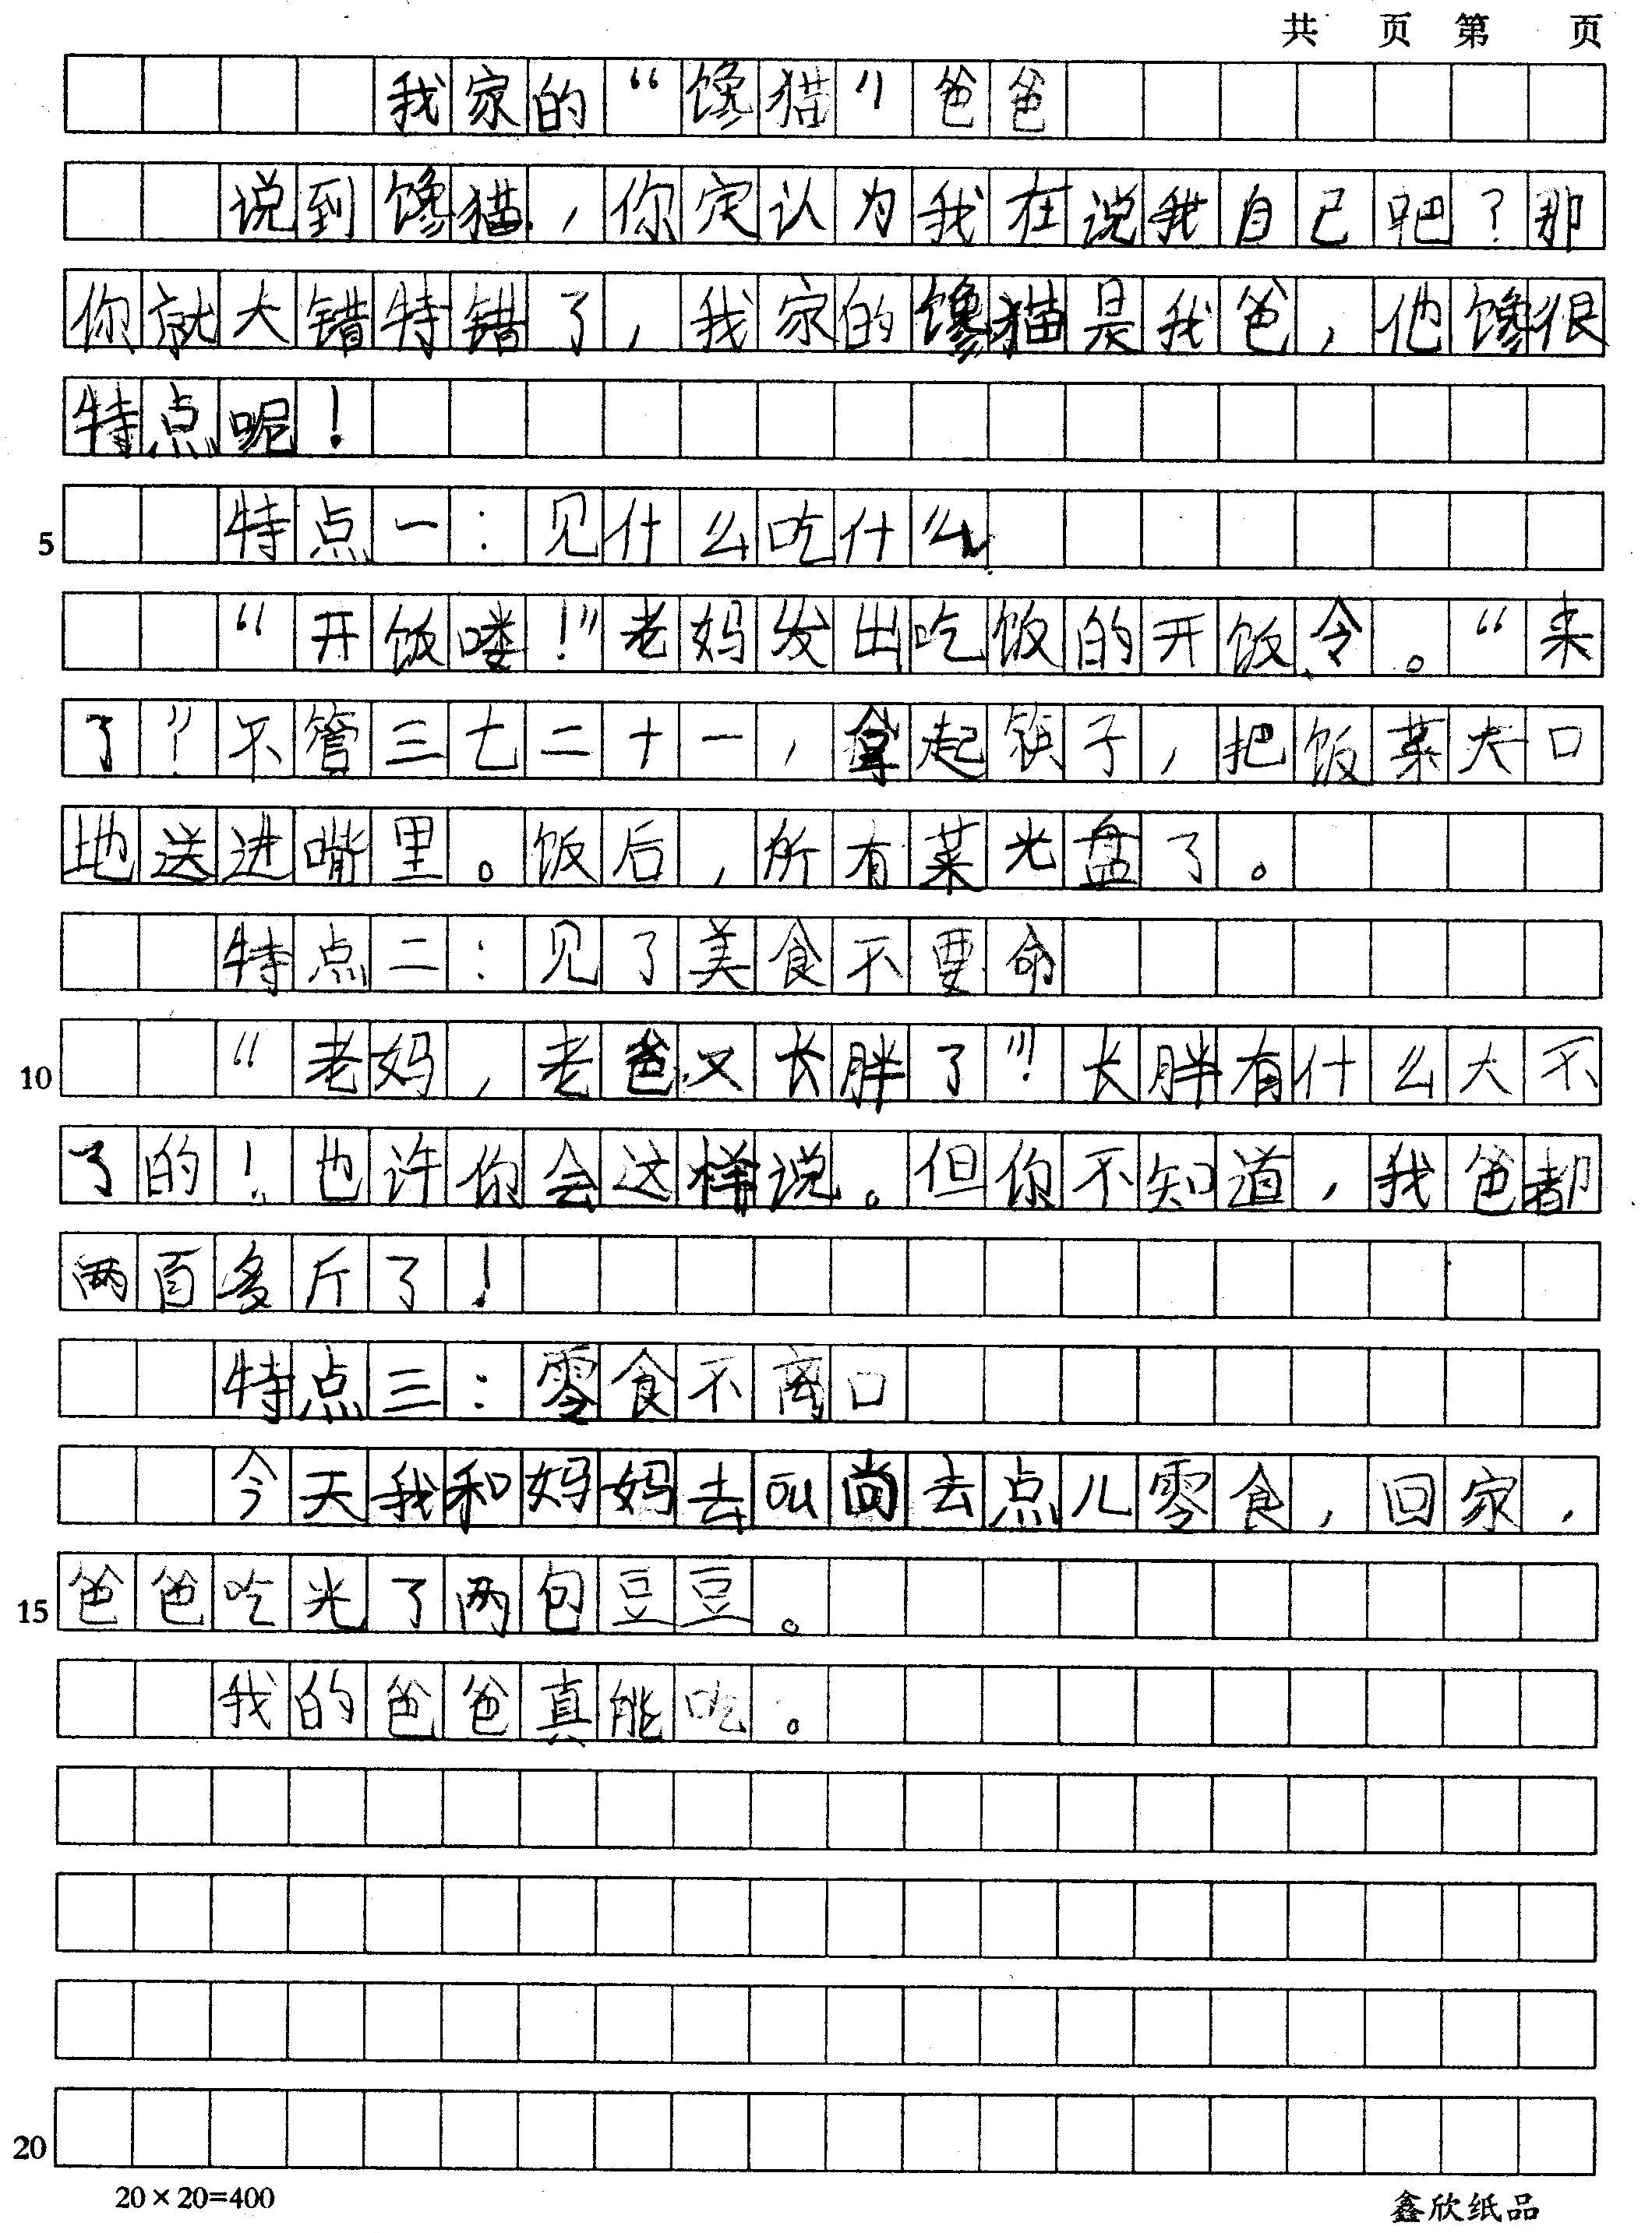 共 页 第 页
我家的“馋猫”爸爸
说到馋猫,你定认为我在说我自己吧?那
你就大错特错了,我家的馋猫是我爸,他馋很
特点呢!
5 特点一:见什么吃什么
“开饭喽!”老妈发出吃饭的开饭令。“来
了!”不管三七二十一,拿起筷子,把饭菜大口
地送进嘴里。饭后,所有菜光盘了。
特点二:见了美食不要命
10 “老妈,老爸又长胖了!”长胖有什么大不
了的!也许你会这样说。但你不知道,我爸都
两百多斤了!
特点三:零食不离口
今天我和妈妈去叫尚去点儿零食,回家,
15 爸爸吃光了两包豆豆。
我的爸爸真能吃。
20
20×20=400 鑫欣纸品